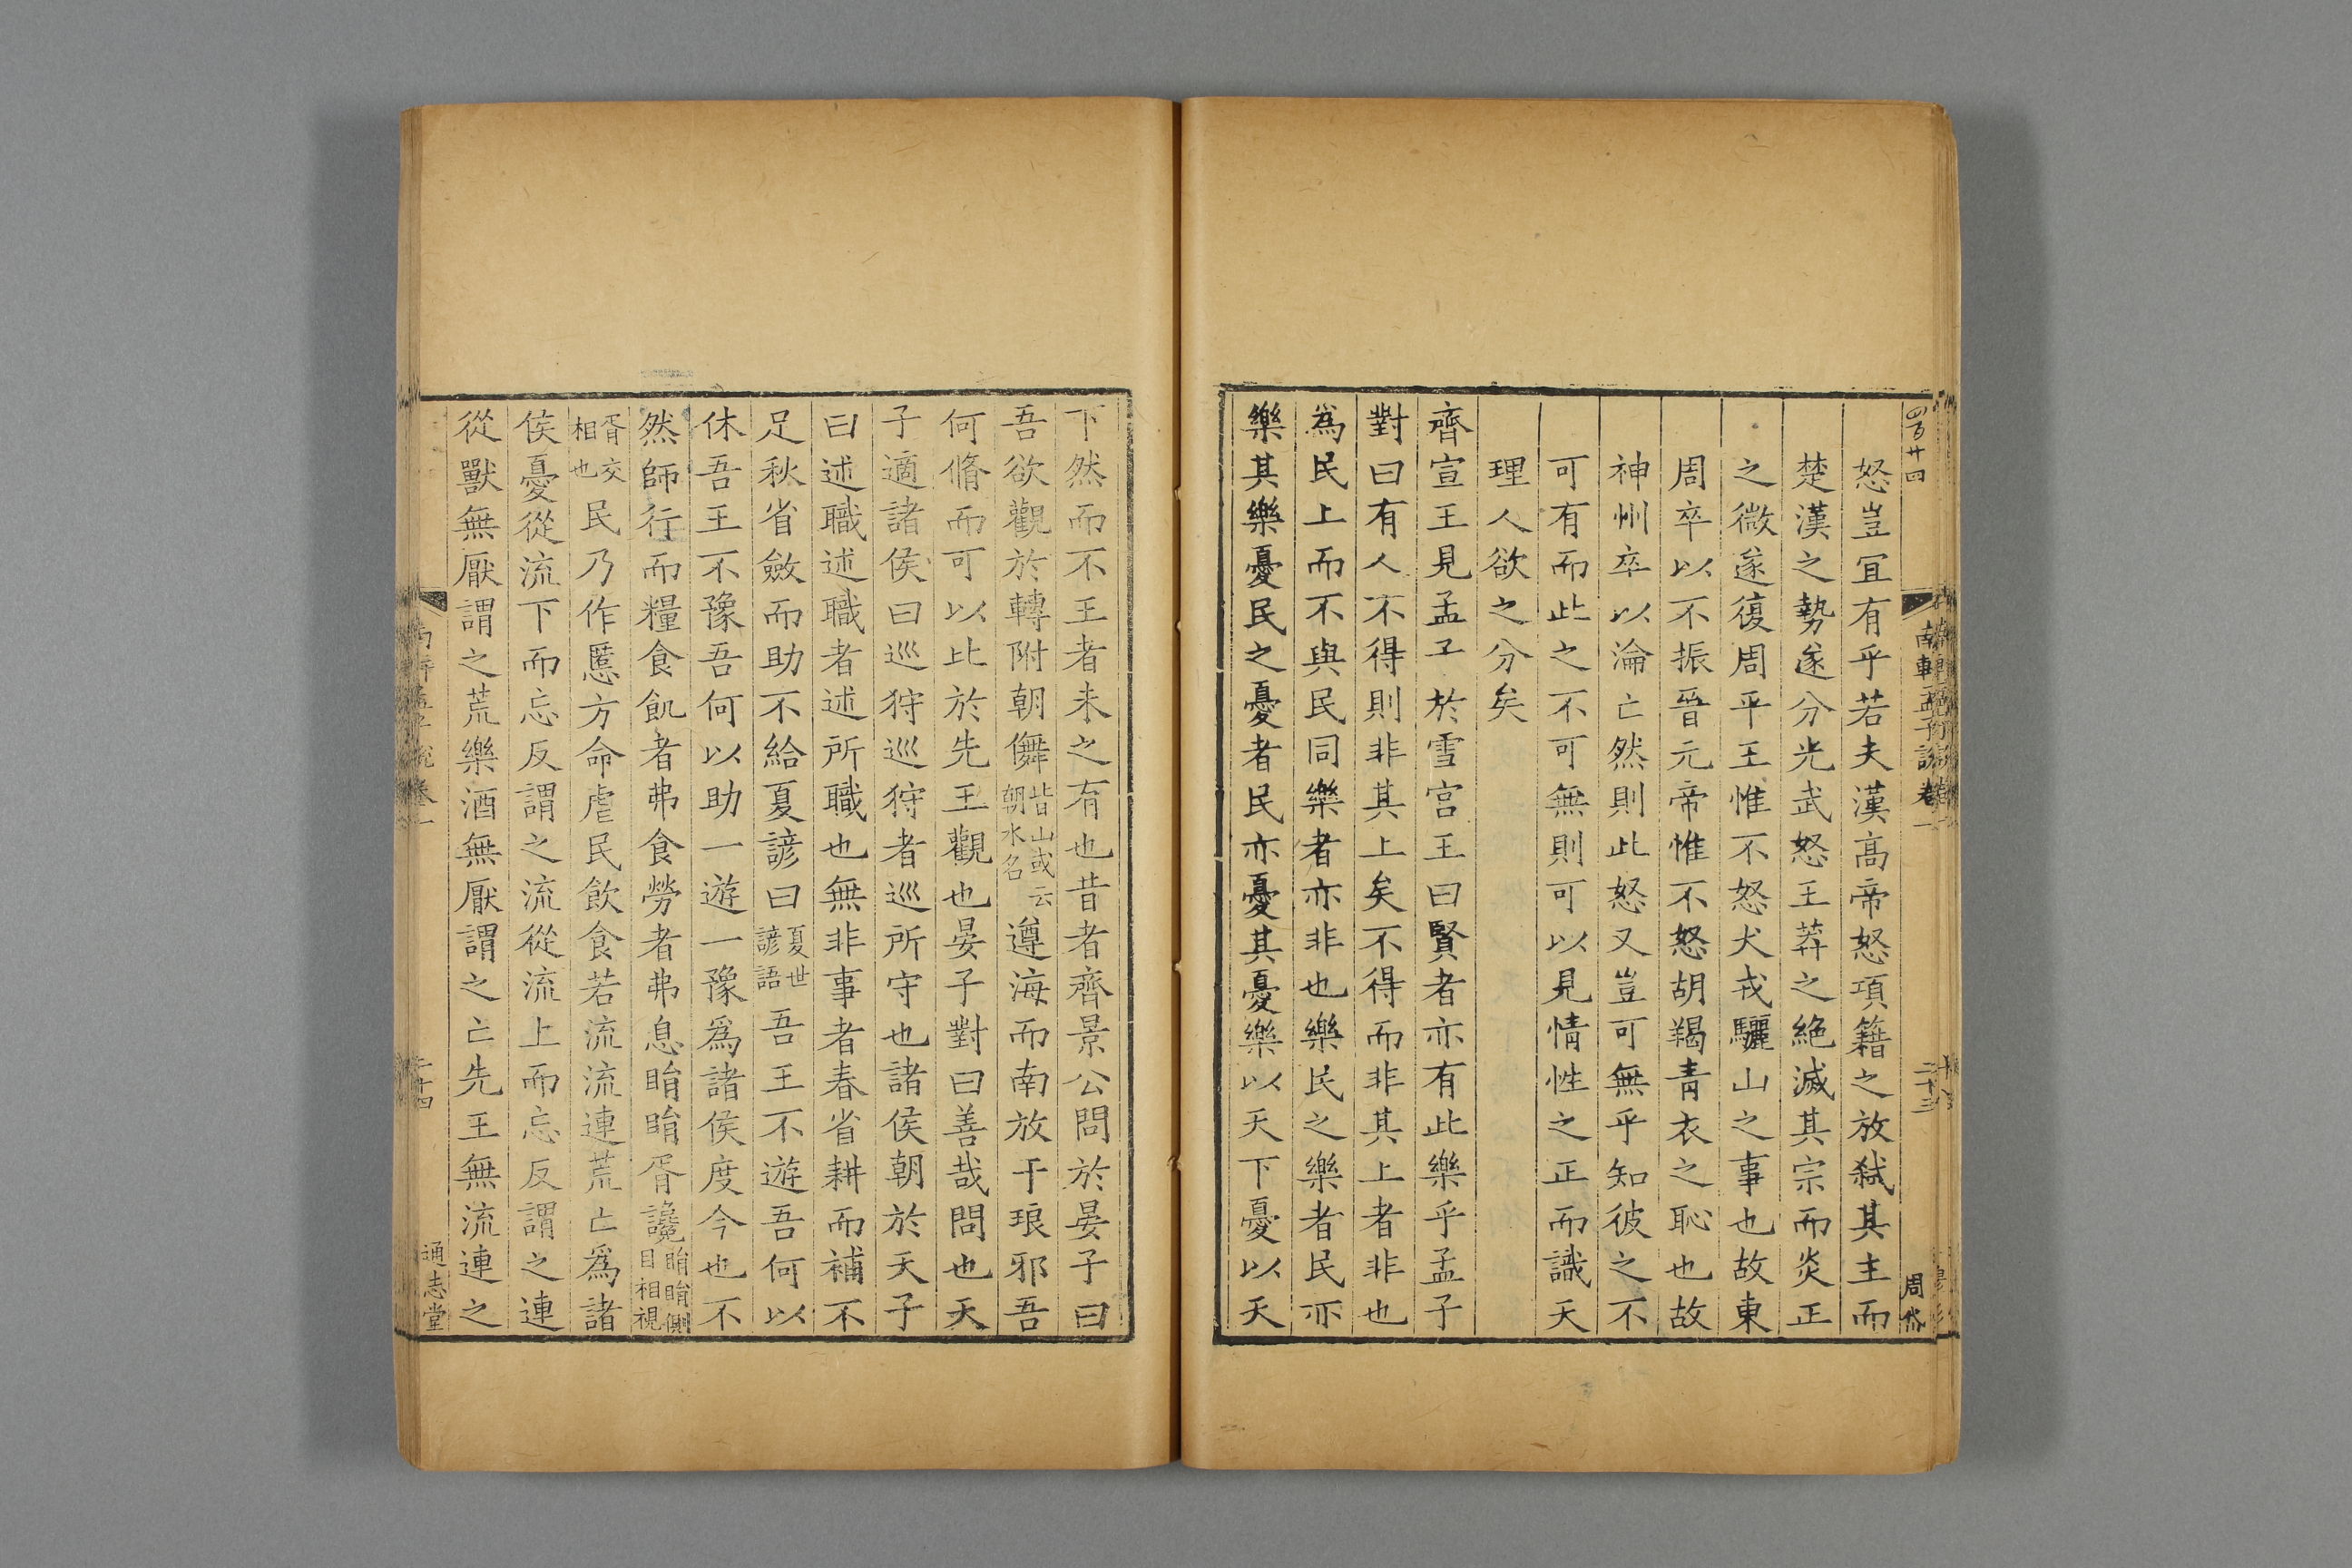 四百廿四
南軒孟子說卷一
二十三
周岱
怒豈宜有乎若夫漢高帝怒項籍之放弑其主而
楚漢之勢遂分光武怒王莽之絶滅其宗而炎正
之微遂復周平王惟不怒犬戎驪山之事也故東
周卒以不振晉元帝惟不怒胡羯青衣之恥也故
神州卒以淪亡然則此怒又豈可無乎知彼之不
可有而此之不可無則可以見情性之正而識天
理人欲之分矣
齊宣王見孟子於雪宮王曰賢者亦有此樂乎孟子
對曰有人不得則非其上矣不得而非其上者非也
為民上而不與民同樂者亦非也樂民之樂者民亦
樂其樂憂民之憂者民亦憂其憂樂以天下憂以天
下然而不王者未之有也昔者齊景公問於晏子曰
吾欲觀於轉附朝儛皆山或云朝水名遵海而南放于琅邪吾
何脩而可以比於先王觀也晏子對曰善哉問也天
子適諸侯曰巡狩巡狩者巡所守也諸侯朝於天子
曰述職述職者述所職也無非事者春省耕而補不
足秋省斂而助不給夏諺曰夏世諺語吾王不遊吾何以
休吾王不豫吾何以助一遊一豫爲諸侯度今也不
然師行而糧食飢者弗食勞者弗息睊睊胥讒睊睊側目相視
胥交相也民乃作慝方命虐民飲食若流流連荒亡爲諸
侯憂從流下而忘反謂之流從流上而忘反謂之連
從獸無厭謂之荒樂酒無厭謂之亡先王無流連之
南軒孟子說卷一
二十四
通志堂